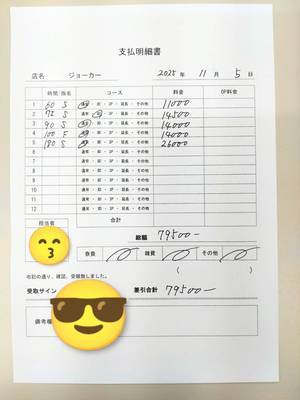 支払明細書
店名 ジョーカー 2025年 11月 5日
時間 指名 コース 料金 OP料金
1 60 S 通常・即・3P・延長・その他 11000
2 75 S 通常・即・3P・延長・その他 14500
3 90 S 通常・即・3P・延長・その他 14000
4 100 F 通常・即・3P・延長・その他 14000
5 180 S 通常・即・3P・延長・その他 26000
6 通常・即・3P・延長・その他
7 通常・即・3P・延長・その他
8 通常・即・3P・延長・その他
9 通常・即・3P・延長・その他
10 通常・即・3P・延長・その他
11 通常・即・3P・延長・その他
12 通常・即・3P・延長・その他
担当者 合計
総額 79500-
寮費 雑費 その他
右記の通り、確認、受領致しました。 ( )
受取サイン 差引合計 79500-
備考欄